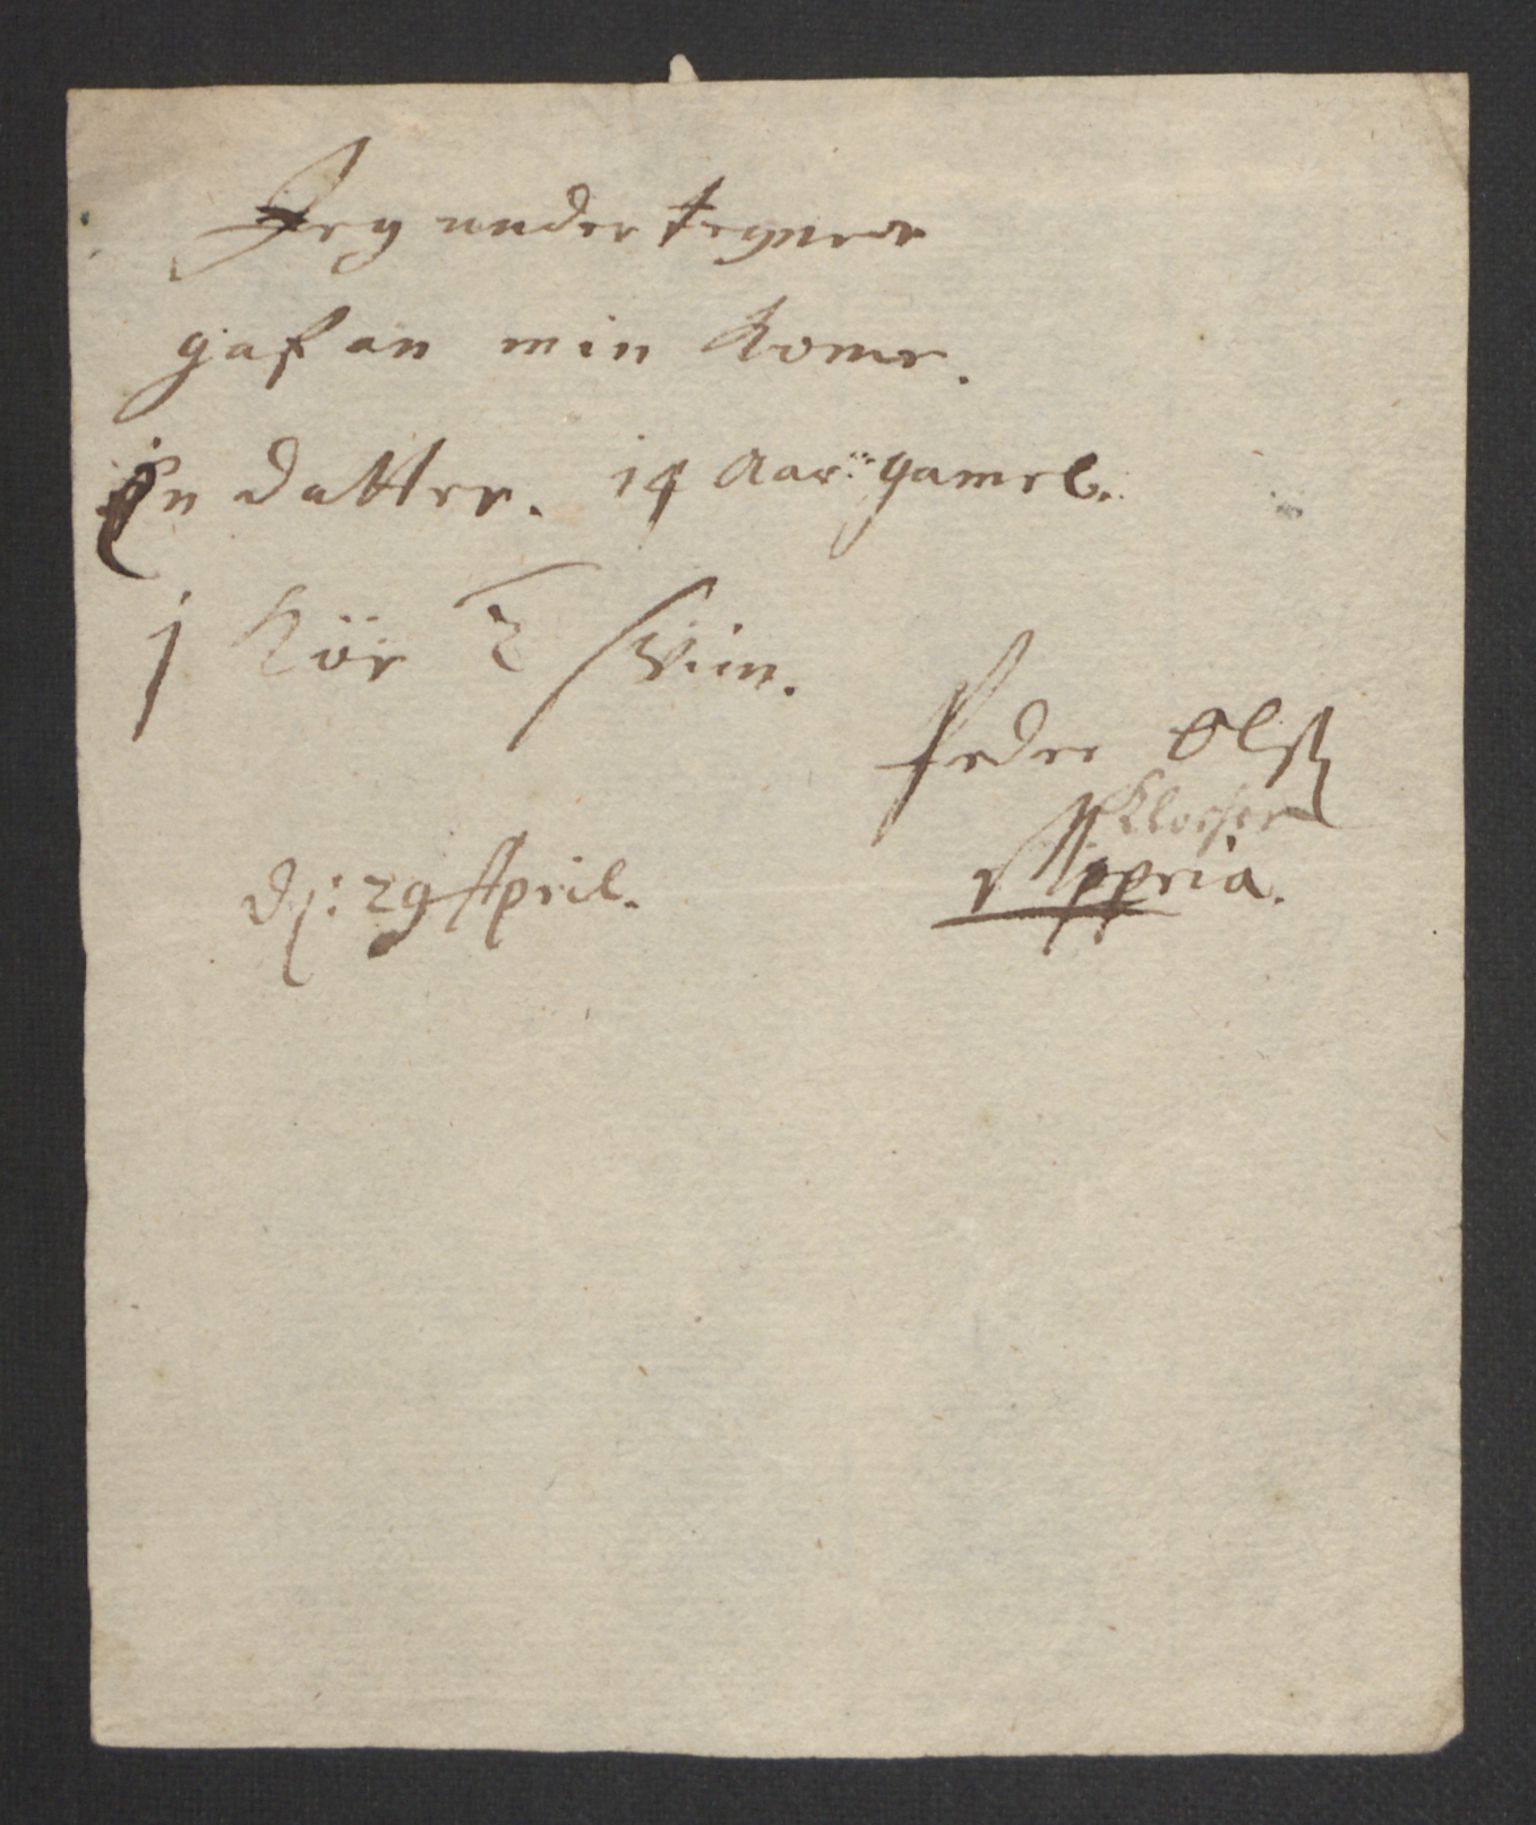 Jeg under tegner
gaf an min Kone.
En datter. 14 Aar: gamel.
1 Kör 2 sviin.
Peder Olß
Klocher
Mppria.
d: 29 April.